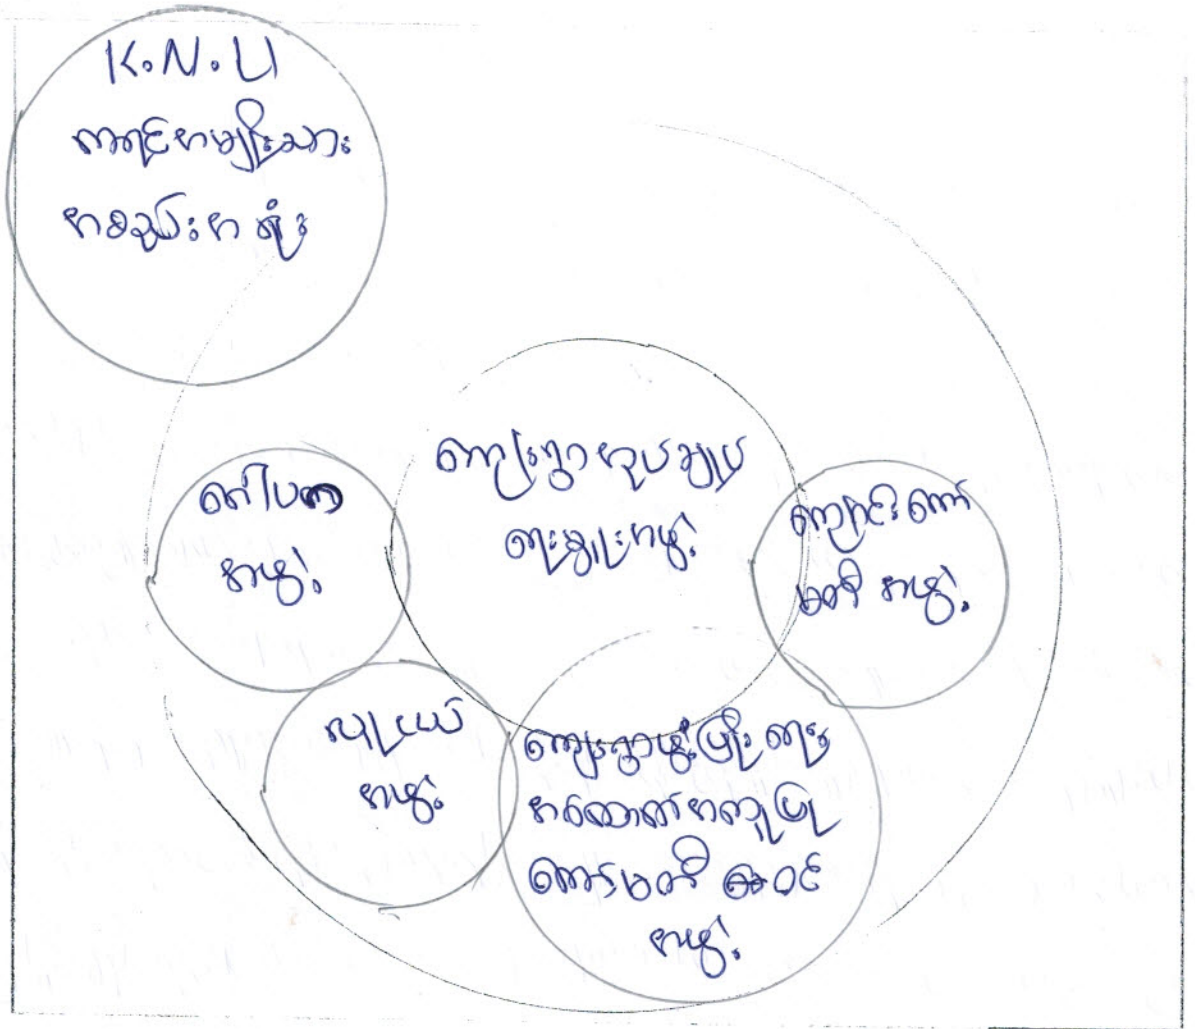 K.N.U
ကရင်အမျိုးသား
အစည်းအရုံး
ကျေးရွာအုပ်ချုပ်
ရေးမှူးအဖွဲ့
ဂေါပက
အဖွဲ့
ကျောင်းကော်
မတီ အဖွဲ့
လူငယ်
အဖွဲ့
ကျေးရွာဖွံ့ဖြိုးရေး
အထောက်အကူပြု
ကော်မတီ ဝင်
အဖွဲ့